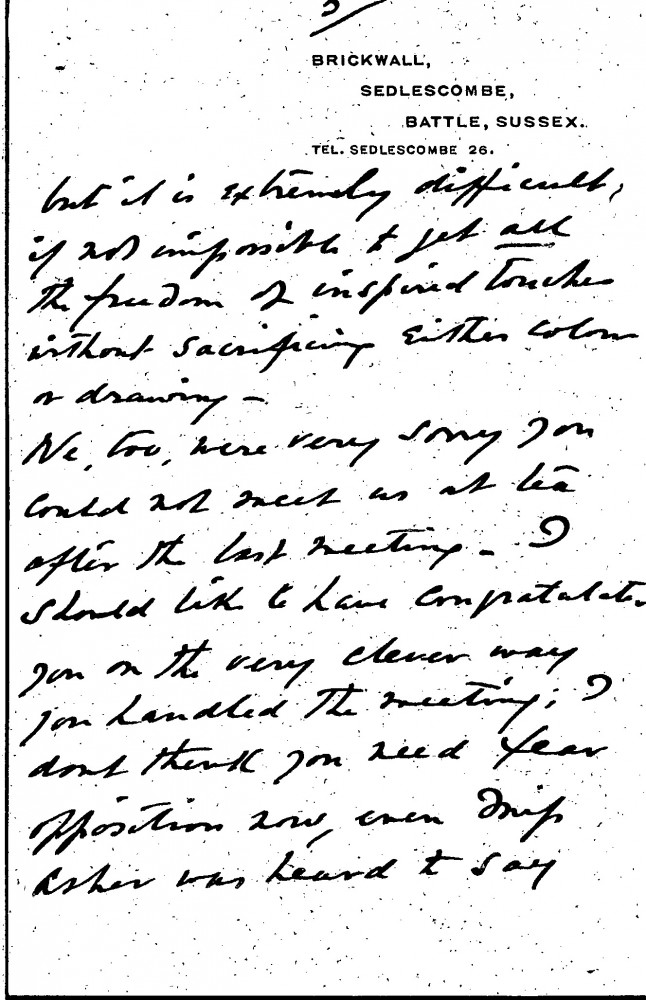 3
BRICKWALL,
SEDLESCOMBE,
BATTLE, SUSSEX.
TEL. SEDLESCOMBE 26.
but it is extremely difficult,
if not impossible to get all
the freedom of inspired touches
without sacrificing either colour
or drawing –
We, too, were very sorry you
could not meet us at tea
after the last meeting – I
should like to have congratulated
you on the very clever way
you handled the meeting; I
dont think you need fear
opposition now, even Miss
Asher was heard to say